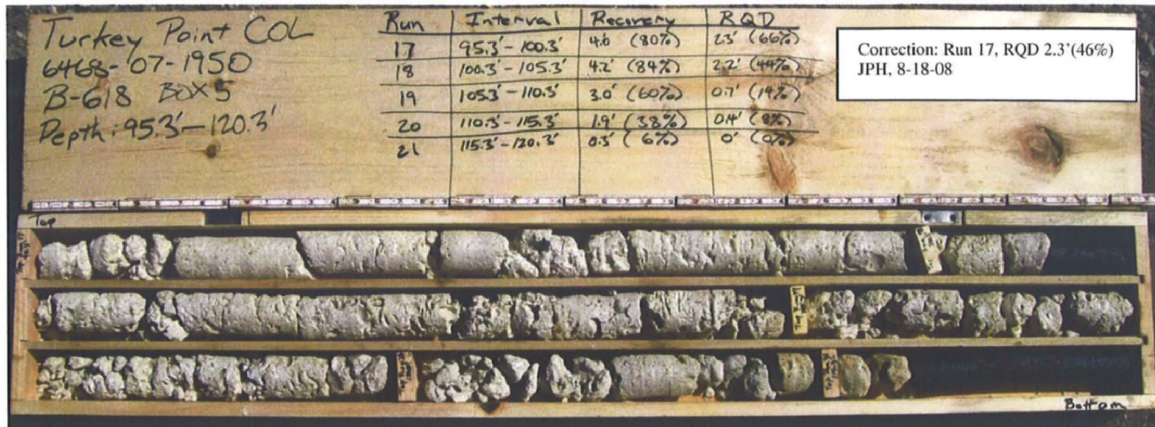 Turkey Point COL
6468-07-1950
B-618 Box 5
Depth: 95.3'-120.3'
Run Interval Recovery RQD
17 95.3'-100.3' 4.0 (80%) 2.3' (66%)
18 100.3'-105.3' 4.2' (84%) 2.2' (44%)
19 105.3'-110.3' 3.0' (60%) 0.7' (14%)
20 110.3'-115.3' 1.9' (38%) 0.4' (8%)
21 115.3'-120.3' 0.3' (6%) 0' (0%)
Correction: Run 17, RQD 2.3'(46%)
JPH, 8-18-08
Top
Bottom